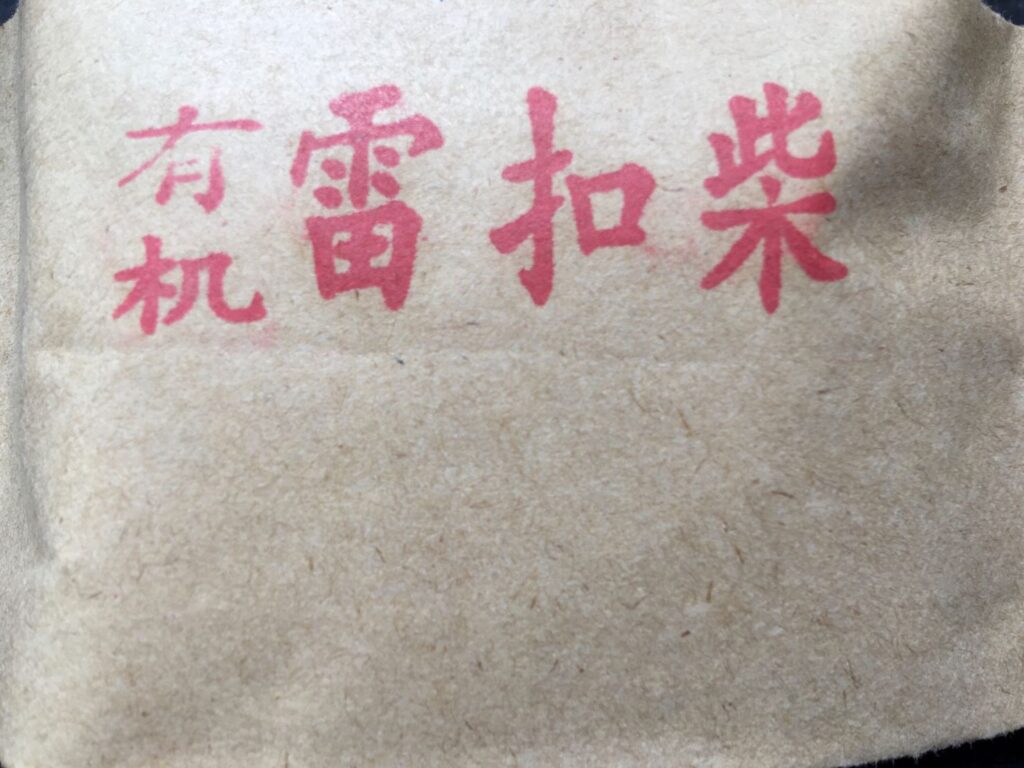 有机雷扣柴